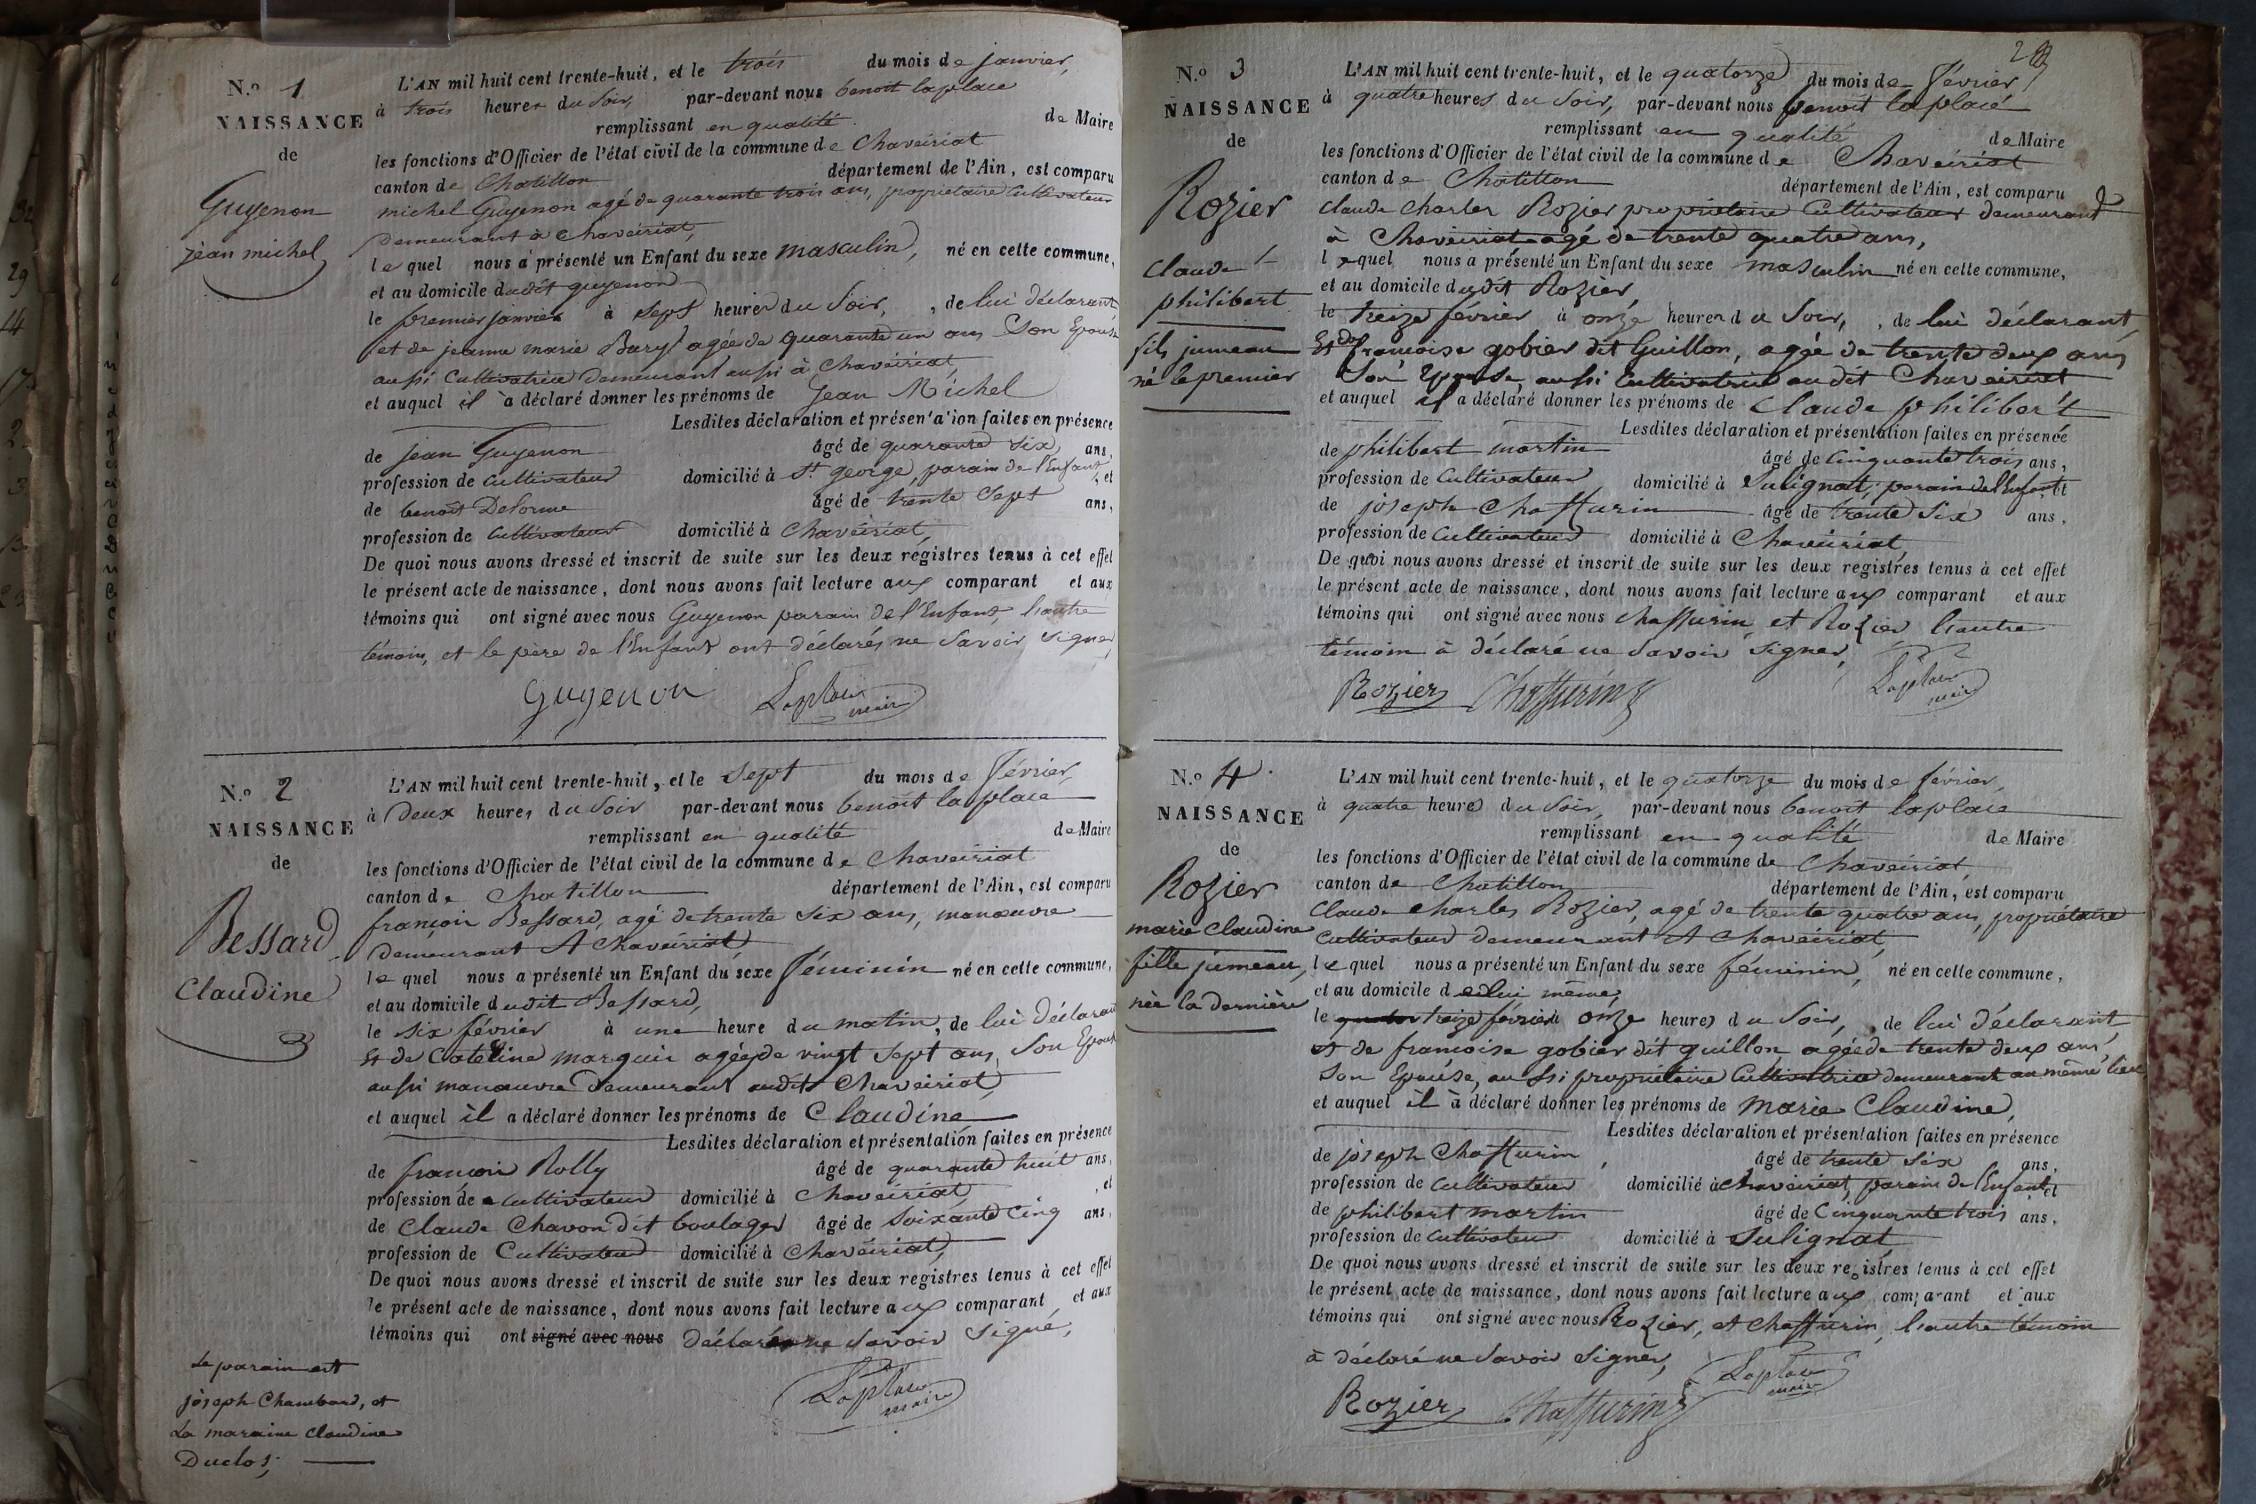 N.o 1
NAISSANCE
de
Guyenon
jean michel
L'AN mil huit cent trente-huit, et le trois du mois de janvier,
à trois heures du Soir, par-devant nous benoit laplace
remplissant en qualité de Maire
les fonctions d'Officier de l'état civil de la commune de Chaveiriat
canton de Chatillon département de l'Ain, est comparu
michel Guyenon agé de quarante trois ans, propriétaire Cultivateur
Demeurant à Chaveiriat,
lequel nous a présenté un Enfant du sexe masculin, né en cette commune,
et au domicile dudit guyenon
le premier janvier à sept heures du Soir, , de lui déclarant
et de jeanne marie Buryt agée de quarante un ans Son Epouse
aussi Cultivatrice Demeurant aussi à Chaveiriat,
et auquel il a déclaré donner les prénoms de Jean Michel
Lesdites déclaration et présentation faites en présence
de jean Guyenon âgé de quarante six ans,
profession de Cultivateur domicilié à St george, parain de l'Enfant, et
de benoit Delorme âgé de trente Sept ans,
profession de Cultivateur domicilié à Chaveiriat,
De quoi nous avons dressé et inscrit de suite sur les deux régistres tenus à cet effet
le présent acte de naissance, dont nous avons fait lecture aux comparant et aux
témoins qui ont signé avec nous Guyenon parain de l'Enfant, l'autre
témoin, et le père de l'Enfant ont déclarés ne Savoir Signer,
Guyenon Laplace maire
N.o 2
NAISSANCE
de
Bessard
Claudine
L'AN mil huit cent trente-huit, et le Sept du mois de Février,
à Deux heures du Soir par-devant nous benoit laplace
remplissant en qualité de Maire
les fonctions d'Officier de l'état civil de la commune de Chaveiriat
canton de Chatillon département de l'Ain, est comparu
françois Bessard, agé de trente Six ans, manœuvre
Demeurant A Chaveiriat
lequel nous a présenté un Enfant du sexe Féminin né en cette commune,
et au domicile dudit Bessard,
le Six février à une heure du matin, de lui Déclarant
Et de Cateline marguin agée de vingt Sept ans, Son Epouse
aussi manœuvre Demeurant audit Chaveiriat,
et auquel il a déclaré donner les prénoms de Claudine
Lesdites déclaration et présentation faites en présence
de françois Rolly âgé de quarante huit ans,
profession de Cultivateur domicilié à Chaveiriat , et
de Claude Chavon Dit boulager âgé de Soixante Cinq ans,
profession de Cultivateur domicilié à Chaveiriat,
De quoi nous avons dressé et inscrit de suite sur les deux registres tenus à cet effet
le présent acte de naissance, dont nous avons fait lecture aux comparant et aux
témoins qui ont signé avec nous déclarés ne Savoir Signé,
Laplace maire
Le parain est
joseph Chambard, et
La maraine Claudine
Duclos,
N.o 3
NAISSANCE
de
Rozier
Claude
philibert
fils jumeau
né le premier
L'AN mil huit cent trente-huit, et le quatorze du mois de Février
à quatre heures du Soir, par-devant nous benoit laplace
remplissant en qualité de Maire
les fonctions d'Officier de l'état civil de la commune de Chaveiriat
canton de Chatillon département de l'Ain, est comparu
Claude Charles Rozier propriétaire Cultivateur demeurant
à Chaveiriat agé de trente quatre ans,
lequel nous a présenté un Enfant du sexe masculin né en cette commune,
et au domicile dudit Rozier,
le treize février à onze heures du Soir, , de lui déclarant
Et de francoise gobier dit Guillon, agée de trente deux ans
Son Epouse, aussi Cultivatrice audit Chaveiriat
et auquel il a déclaré donner les prénoms de Claude philibert
Lesdites déclaration et présentation faites en présence
de philibert martin âgé de Cinquante trois ans,
profession de Cultivateur domicilié à Sulignat, parain de l'Enfant et
de joseph Chaffurin âgé de trente Six ans,
profession de Cultivateur domicilié à Chaveiriat
De quoi nous avons dressé et inscrit de suite sur les deux registres tenus à cet effet
le présent acte de naissance, dont nous avons fait lecture aux comparant et aux
témoins qui ont signé avec nous Chaffurin, et Rozier l'autre
témoin à déclaré ne Savoir Signer,
Rozier Chaffurin Laplace maire
N.o 4
NAISSANCE
de
Rozier
marie Claudine
fille jumeau,
née la dernière
L'AN mil huit cent trente-huit, et le quatorze du mois de février,
à quatre heures du Soir, par-devant nous benoit laplace
remplissant en qualité de Maire
les fonctions d'Officier de l'état civil de la commune de Chaveiriat
canton de Chatillon département de l'Ain, est comparu
Claude Charles Rozier, agé de trente quatre ans, propriétaire
Cultivateur demeurant A Chaveiriat,
lequel nous a présenté un Enfant du sexe féminin, né en cette commune,
et au domicile de lui même,
le treize février à onze heures du Soir, , de lui déclarant
et de francoise gobier dit guillon agée de trente deux ans,
Son Epouse, aussi propriétaire Cultivatrice demeurant au même lieu
et auquel il à déclaré donner les prénoms de Marie Claudine,
Lesdites déclaration et présentation faites en présence
de joseph Chaffurin, âgé de trente Six ans,
profession de Cultivateur domicilié à Chaveiriat, parain de l'Enfant et
de philibert martin âgé de Cinquante trois ans,
profession de Cultivateur domicilié à Sulignat
De quoi nous avons dressé et inscrit de suite sur les deux registres tenus à cet effet
le présent acte de naissance, dont nous avons fait lecture aux comparant et aux
témoins qui ont signé avec nous Rozier, et Chaffurin, l'autre témoin
à déclaré ne Savoir Signer,
Rozier Chaffurin Laplace maire